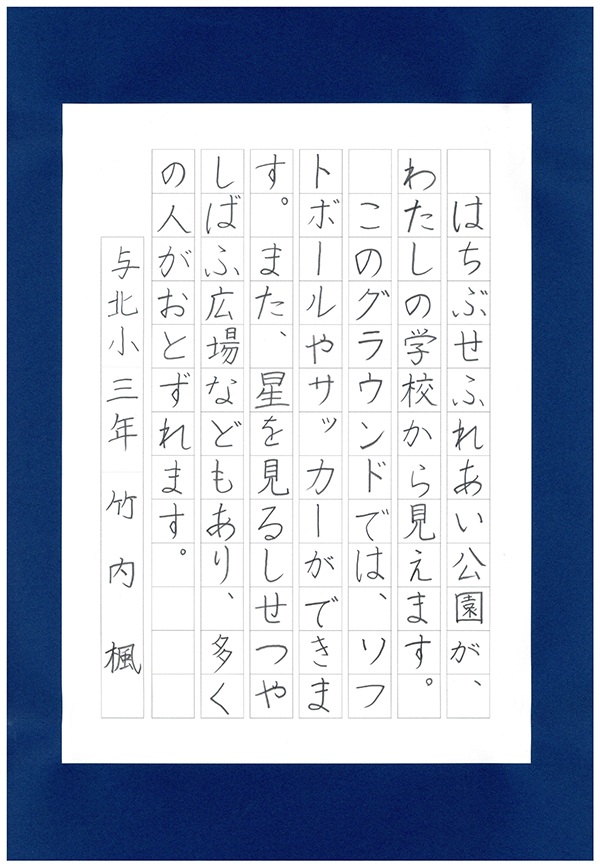 はちぶせふれあい公園が、
わたしの学校から見えます。
このグラウンドでは、ソフ
トボールやサッカーができま
す。また、星を見るしせつや
しばふ広場などもあり、多く
の人がおとずれます。
与北小三年 竹内楓